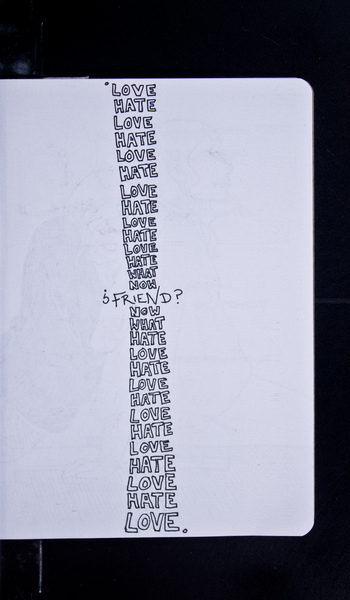 LOVE
HATE
LOVE
HATE
LOVE
HATE
LOVE
HATE
LOVE
HATE
LOVE
HATE
WHAT
NOW
¿FRIEND?
NOW
WHAT
HATE
LOVE
HATE
LOVE
HATE
LOVE
HATE
LOVE
HATE
LOVE
HATE
LOVE.